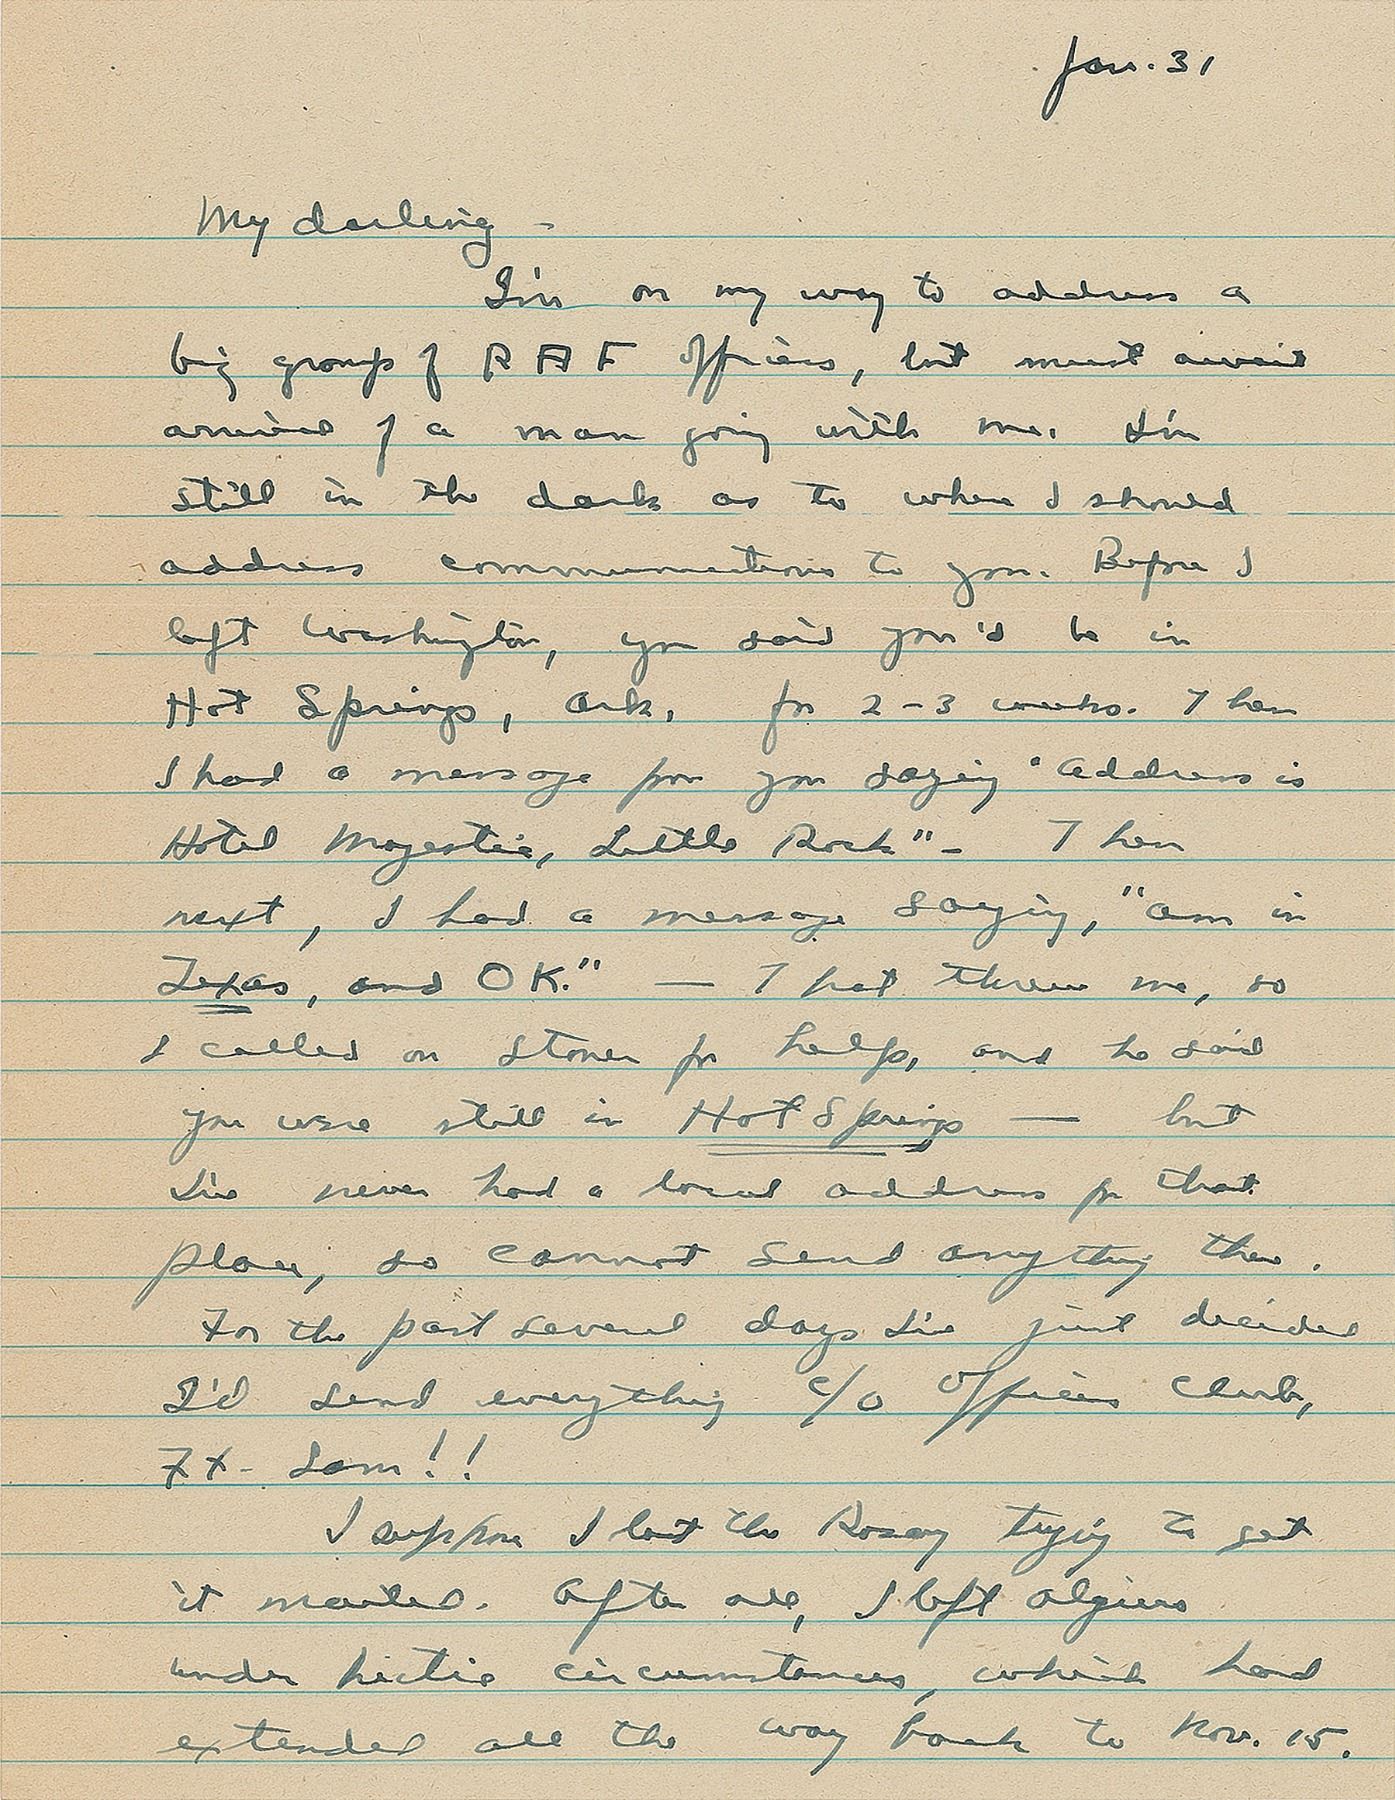 Jan. 31
My darling -
I'm on my way to address a
big group of RAF officers, but must await
arrival of a man going with me. I'm
still in the dark as to where I should
address communications to you. Before I
left Washington, you said you'd be in
Hot Springs, Ark. for 2-3 weeks. Then
I had a message from you saying "Address is
Hotel Majestic, Little Rock" - Then
next, I had a message saying, "am in
Texas, and OK." — That threw me, so
I called on Stoner for help, and he said
you were still in Hot Springs — but
I've never had a local address for that
place, so cannot send anything there.
For the past several days I've just decided
I'd send everything c/o Officers Club,
Ft. Sam!!
I suppose I lost the Rosary trying to get
it mailed. After all, I left Algiers
under hectic circumstances, which had
extended all the way back to Nov. 15.